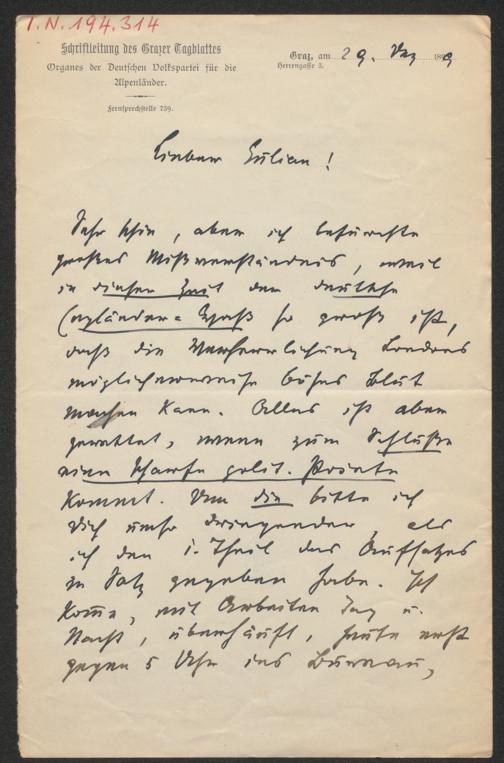 I.N. 194.314
Schriftleitung des Grazer Tagblattes
Organes der Deutschen Volkspartei für die
Alpenländer.
Fernsprechstelle 759.
Graz, am 29. Dez 1899
Herrengasse 3.
Lieber Julian!
Sehr schön, aber ich befürchte
großes Mißverständnis, weil
in dieser Zeit der deutsche
Engländer-Haß so groß ist,
daß die Verherrlichung Londons
möglicherweise böses Blut
machen kann. Alles ist aber
gerettet, wenn zum Schluße
eine scharfe polit. Pointe
kommt. Um die bitte ich
Dich umso dringender, als
ich den 1. Theil des Aufsatzes
in Satz gegeben habe. Ich
komme, mit Arbeiten Tag u.
Nacht, überhäuft, heute erst
gegen 5 Uhr ins Bureau,